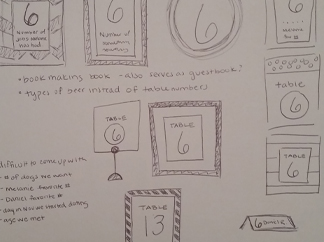 6
Number of
6
Number of
6
6
• book making book - also serves as guestbook?
• types of beer instead of table numbers
table
6
TABLE
6
TABLE
6
TABLE
6
difficult to come up with
- # of dogs we want
- Melanie favorite #
- Daniel favorite #
- day in Nov we started dating
- age we met
TABLE
13
6